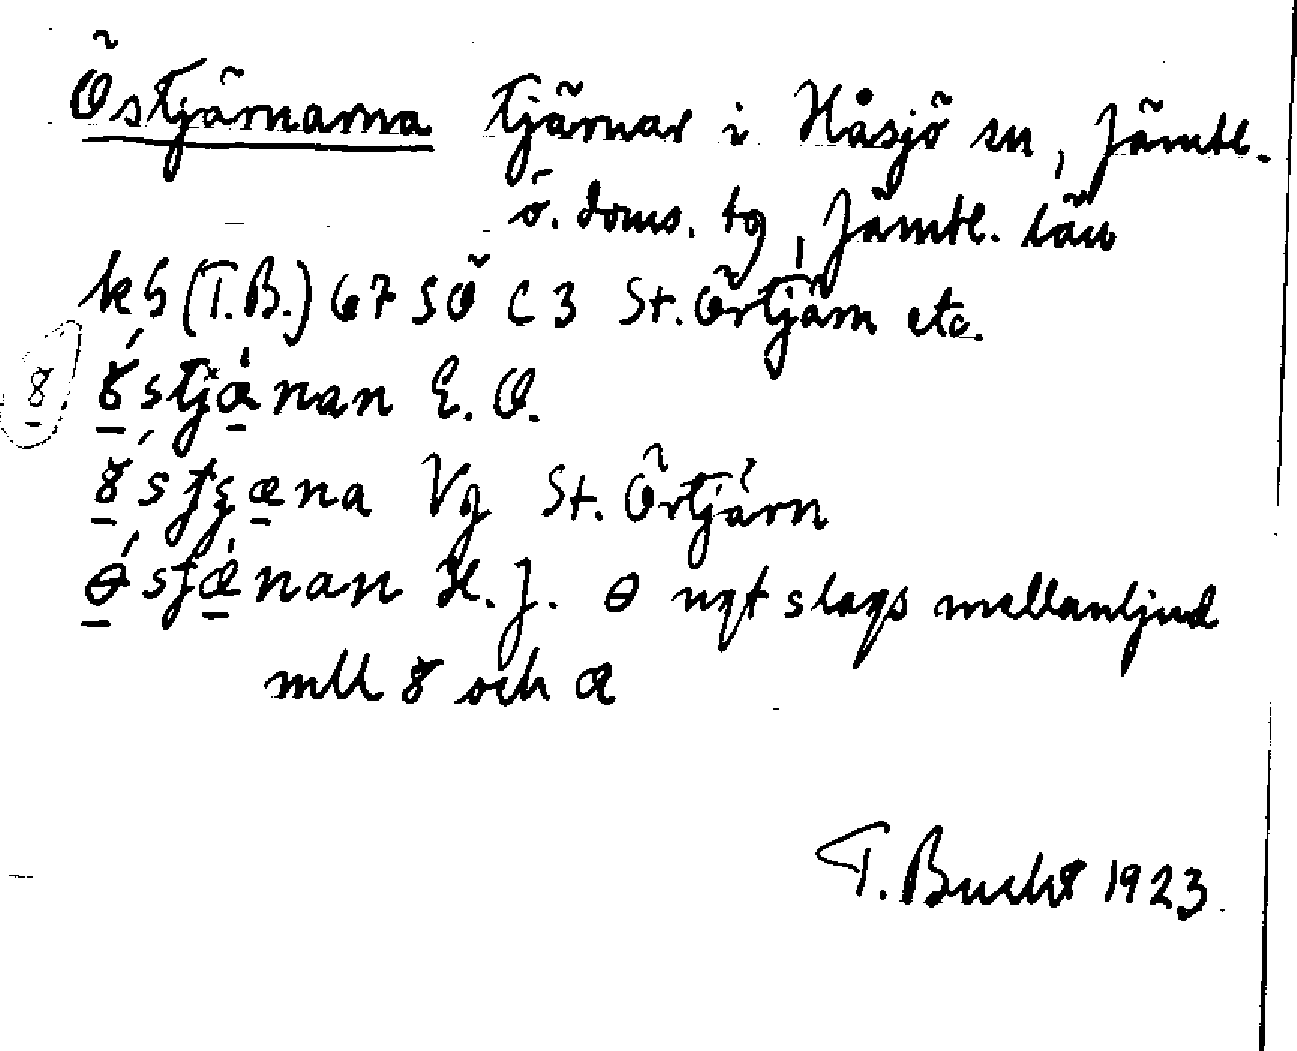 Östjärnarna tjärnar i Håsjö sn, Jämtl.
ö. doms. tg, Jämtl. län
kh (T.B.) 67 SÖ C 3 St. Örtjärn etc.
8 8́stjæ̀nan E. O.
8́stȥæna Vg St. Örtjärn
ɵ́sfæ̀nan H. J. ɵ ngt slags mellanljud
mll 8 och æ
T. Bucht 1923